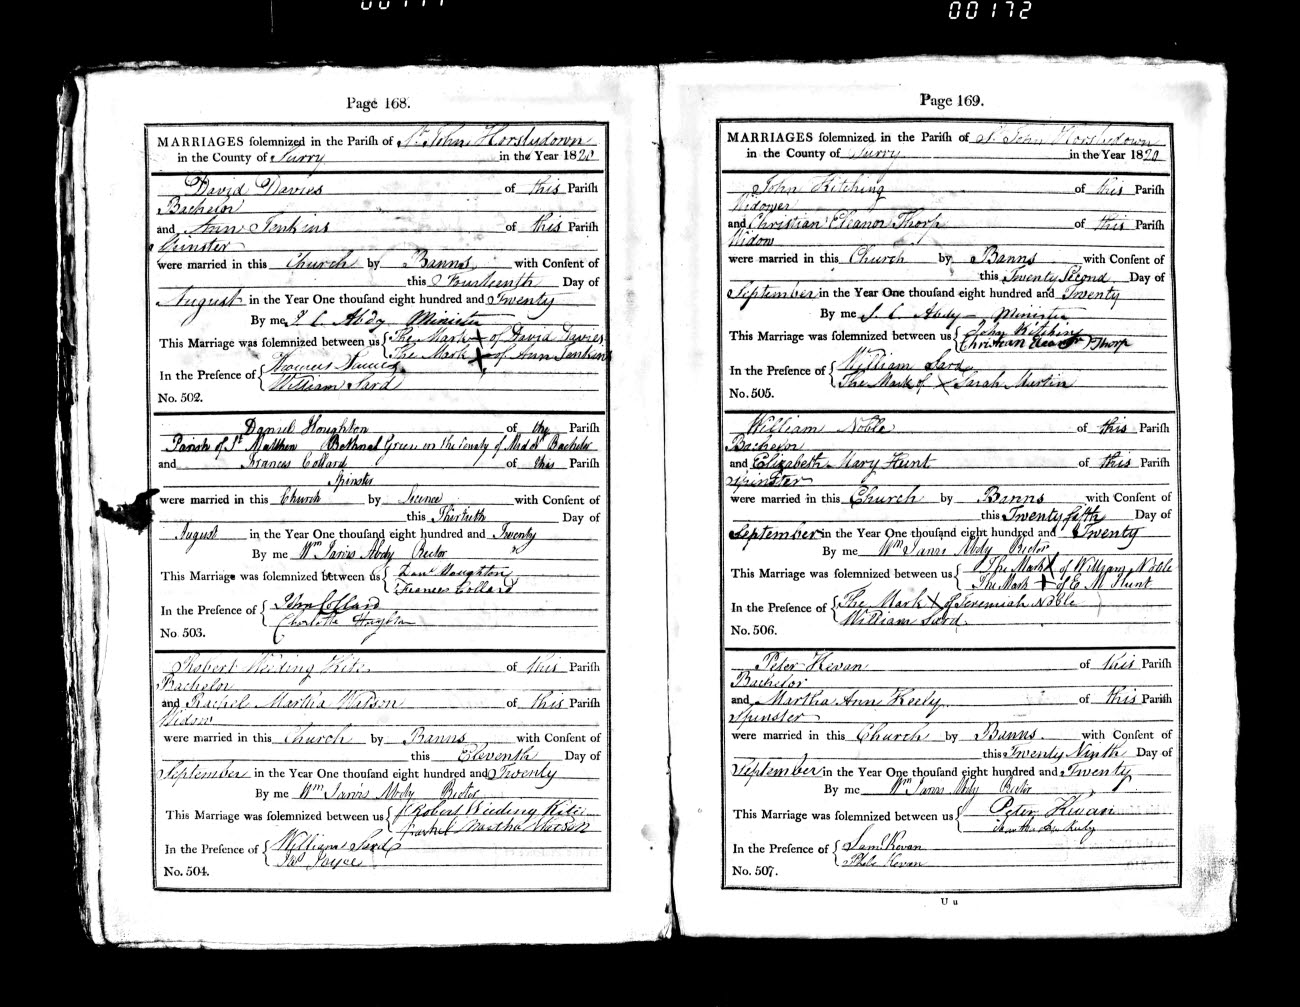 00172
Page 168.
MARRIAGES solemnized in the Parish of St. John Horslydown
in the County of Surry in the Year 1820
David Davies of this Parish
Bachelor
and Ann Jenkins of this Parish
Spinster
were married in this Church by Banns with Consent of
this Fourteenth Day of
August in the Year One thousand eight hundred and Twenty
By me Minister
This Marriage was solemnized between us { The Mark X of David Davies
The Mark X of Ann Jenkins
In the Presence of { Thomas
William Sard
No. 502.
Daniel Houghton of the Parish
Parish of St Matthew Bethnal Green in the County of Middx Bachelor
and Frances Collard of this Parish
Spinster
were married in this Church by Licence with Consent of
this Thirtieth Day of
August in the Year One thousand eight hundred and Twenty
By me Wm Jarvis Abdy Rector
This Marriage was solemnized between us { Danl Houghton
Frances Collard
In the Presence of { John Collard
Charlotte Houghton
No. 503.
Robert Weeding Kite of this Parish
Bachelor
and Rachel Martha Watson of this Parish
Widow
were married in this Church by Banns with Consent of
this Eleventh Day of
September in the Year One thousand eight hundred and Twenty
By me Wm Jarvis Abdy Rector
This Marriage was solemnized between us { Robert Weeding Kite
Rachel Martha Watson
In the Presence of { William Sard
Jas Joyce
No. 504.
Page 169.
MARRIAGES solemnized in the Parish of St. John Horslydown
in the County of Surry in the Year 1820
John Kitching of this Parish
Widower
and Christian Eleanor Thorp of this Parish
Widow
were married in this Church by Banns with Consent of
this Twenty Second Day of
September in the Year One thousand eight hundred and Twenty
By me Minister
This Marriage was solemnized between us { John Kitching
Christian Eleanor Thorp
In the Presence of { William Sard
The Mark of X Sarah Martin
No. 505.
William Noble of this Parish
Bachelor
and Elizabeth Mary Hunt of this Parish
Spinster
were married in this Church by Banns with Consent of
this Twenty fifth Day of
September in the Year One thousand eight hundred and Twenty
By me Wm Jarvis Abdy Rector
This Marriage was solemnized between us { The Mark X of William Noble
The Mark X of E M Hunt
In the Presence of { The Mark X of Jeremiah Noble
William Sard
No. 506.
Peter Kevan of this Parish
Bachelor
and Martha Ann Keely of this Parish
Spinster
were married in this Church by Banns with Consent of
this Twenty Ninth Day of
September in the Year One thousand eight hundred and Twenty
By me Wm Jarvis Abdy Rector
This Marriage was solemnized between us { Peter Kevan
Martha Ann Keely
In the Presence of { Saml Kevan
Kevan
No. 507.
U u